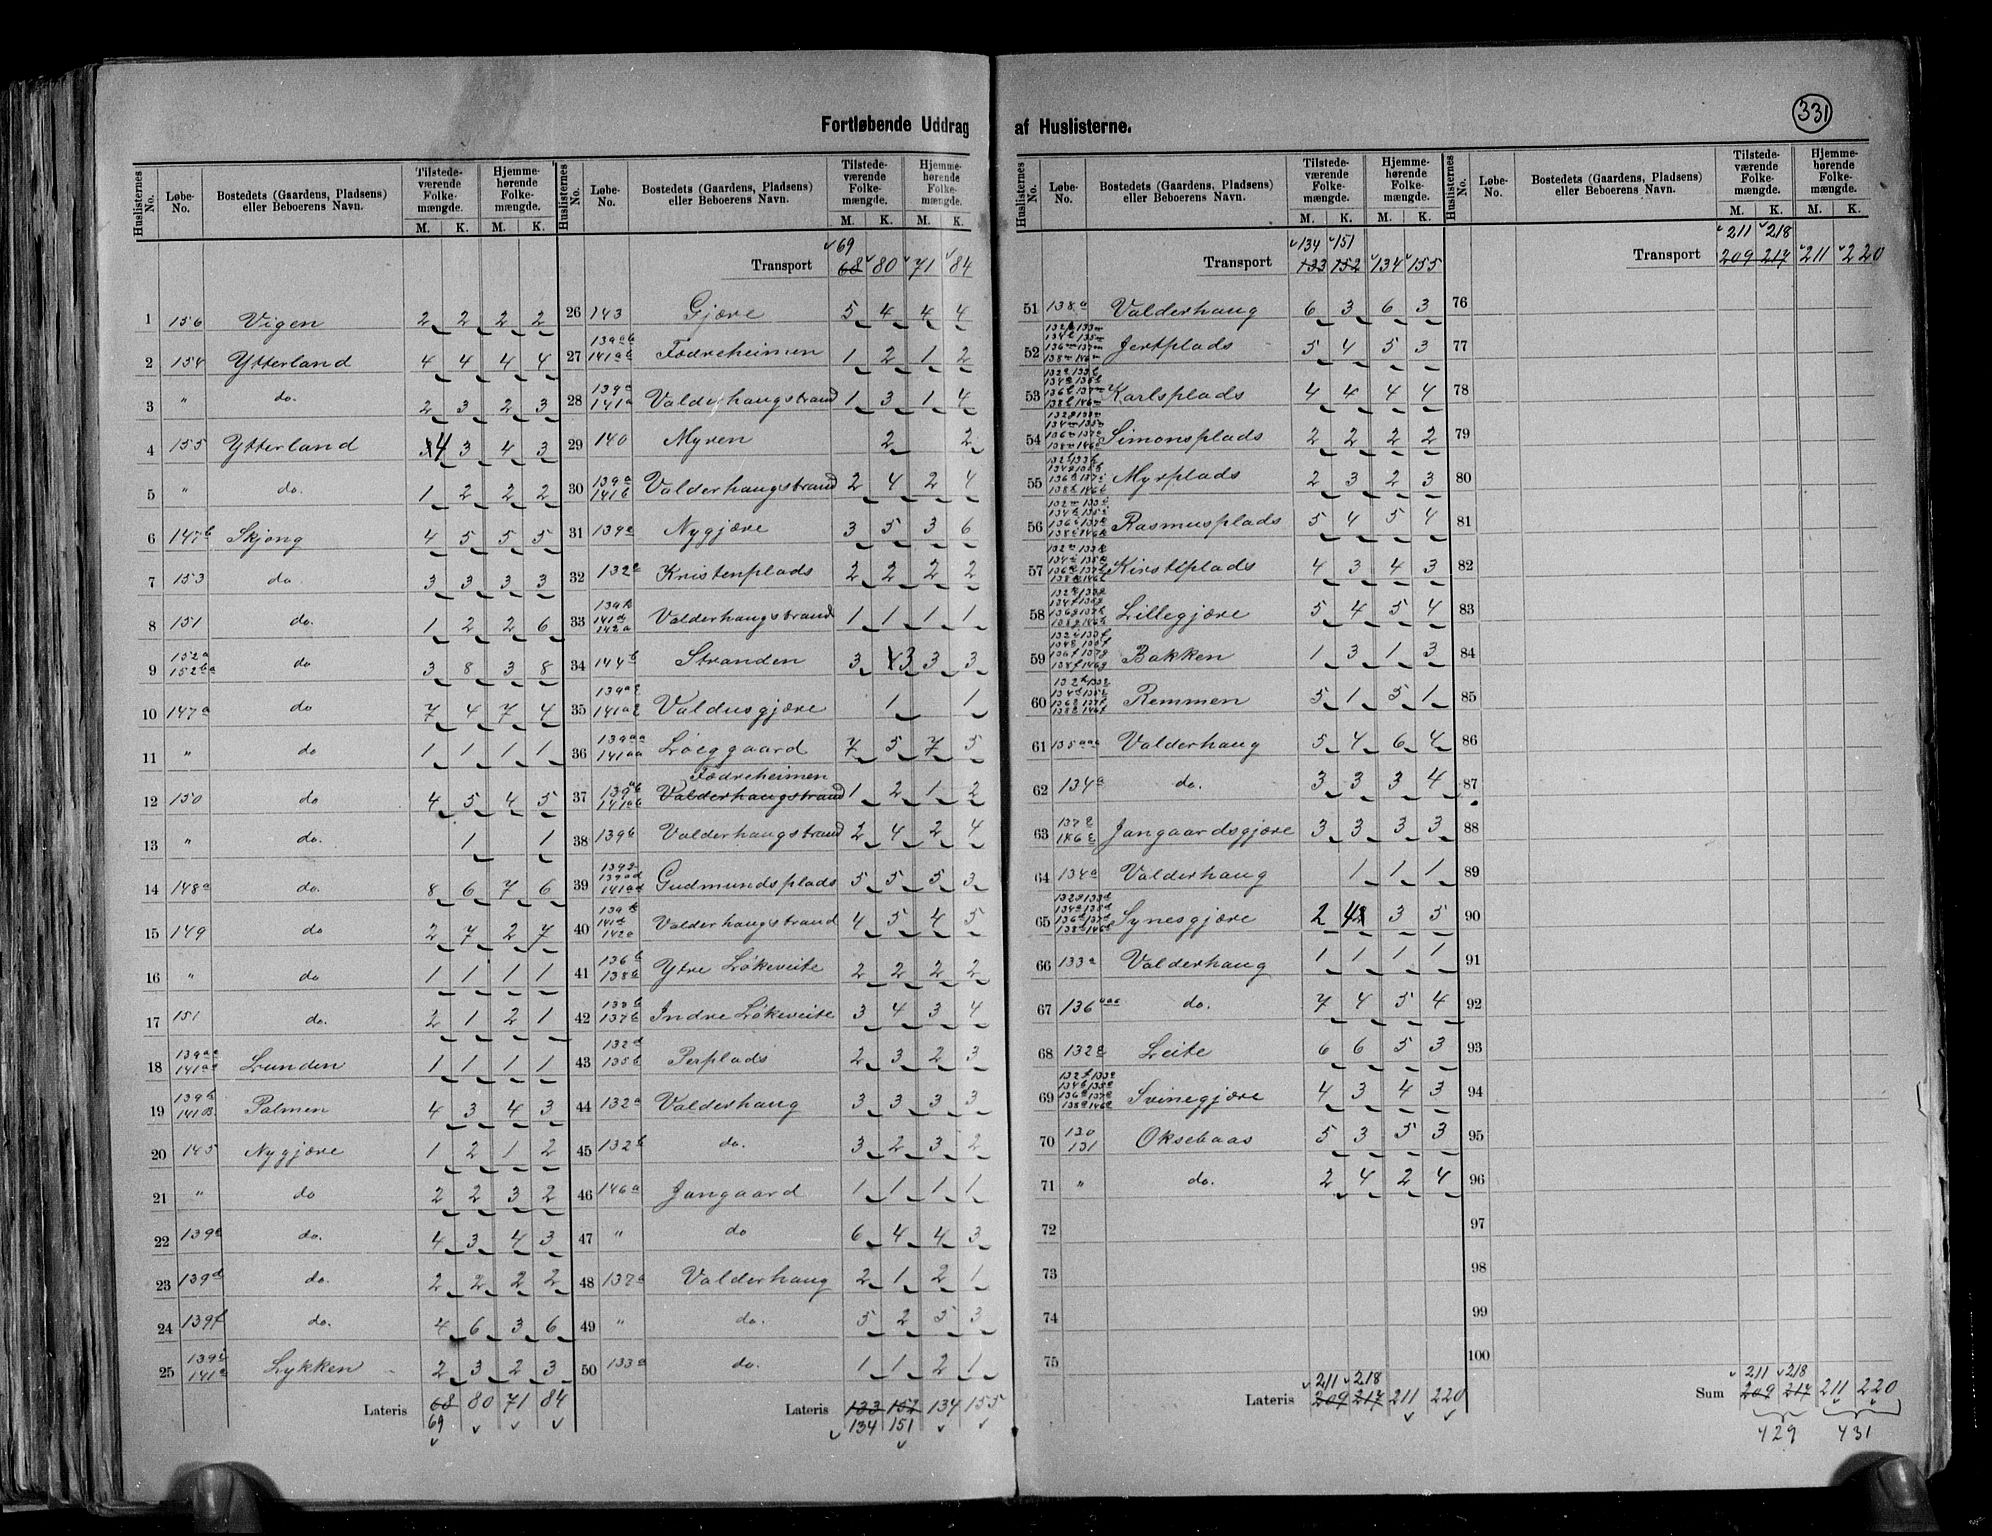 331
Fortløbende Uddrag af Huslisterne.
Huslisternes No. Løbe-No. Bostedets (Gaardens, Pladsens) eller Beboerens Navn. Tilstedeværende Folkemængde. Hjemmehørende Folkemængde. M. K. M. K.
1 156 Vigen 2 2 2 2
2 154 Ytterland 4 4 4 4
3 " do. 2 3 2 3
4 155 Ytterland 4 3 4 3
5 " do. 1 2 2 2
6 147b Skjong 4 5 5 5
7 153 do 3 3 3 3
8 151 do. 1 2 2 6
9 152a 152ba do 3 8 3 8
10 147a do 7 4 7 4
11 " do 1 1 1 1
12 150 do 4 5 4 5
13 " do. 1 1
14 148a do. 8 6 7 6
15 149 do 2 7 2 7
16 " do 1 1 1 1
17 151 do. 2 1 2 1
18 Lunden 1 1 1 1
19 Palmen 4 3 4 3
20 145 Nygjære 1 2 1 2
21 " do 2 2 3 2
22 139e do. 4 3 4 3
23 139d do. 2 2 2 2
24 139f do. 4 6 3 6
25 Lykken 2 3 2 3
Lateris 68 80 71 84
69
Huslisternes No. Løbe-No. Bostedets (Gaardens, Pladsens) eller Beboerens Navn. Tilstedeværende Folkemængde. Hjemmehørende Folkemængde. M. K. M. K.
69
Transport 68 80 71 84
26 143 Gjære 5 4 4 4
27 139ab 141ab Fødreheimen 1 2 1 2
28 139a 141a Valderhaugstrand 1 3 1 4
29 140 Myren 2 2
30 139a 141b Valderhaugstrand 2 4 2 4
31 139a Nygjære 3 5 3 6
32 132e Kristenplads 2 2 2 2
33 Valderhaugstrand 1 1 1 1
34 144b Stranden 3 3 3 3
35 Valdusgjære 1 1
36 139aa 141aa Løeggaard 7 5 7 5
Fødreheimen
37 139ab 141ab Valderhaugstrand 1 2 1 2
38 139b Valderhaugstrand 2 4 2 4
39 139ad 141ad Gudmundsplads 5 5 5 3
40 Valderhaugstrand 4 5 4 5
41 136b 138b Ytre Løkeveite 2 2 2 2
42 133b 137b Indre Løkeveite 3 4 3 4
43 132d 135b Perplads 2 3 2 3
44 132a Valderhaug 3 3 3 3
45 132b do. 3 2 3 2
46 146a Jangaard 1 1 1 1
47 " do 6 4 4 3
48 137a Valderhaug 2 1 2 1
49 " do. 5 2 5 3
50 133a do. 1 1 2 1
Lateris 133 152 134 155
134 151
Huslisternes No. Løbe-No. Bostedets (Gaardens, Pladsens) eller Beboerens Navn. Tilstedeværende Folkemængde. Hjemmehørende Folkemængde. M. K. M. K.
134 151
Transport 133 152 134 155
51 138a Valderhaug 6 3 6 3
52 Jertplads 5 4 5 3
53 Karlsplads 4 4 4 4
54 Simonsplads 2 2 2 2
55 Myrplads 2 3 2 3
56 Rasmusplads 5 4 5 4
57 Kirstiplads 4 3 4 3
58 Lillegjære 5 4 5 4
59 Bakken 1 3 1 3
60 Remmen 5 1 5 1
61 135aaa Valderhaug 5 4 6 4
62 134a do. 3 3 3 4
63 137e 146e Jangaardsgjære 3 3 3 3
64 134a Valderhaug 1 1 1
65 Synesgjære 2 4 3 5
66 133a Valderhaug 1 1 1 1
67 136aaa do. 7 4 5 4
68 132e Leite 6 6 5 3
69 Svinegjære 4 3 4 3
70 130 131 Oksebaas 5 3 5 3
71 " do. 2 4 2 4
72
73
74
75
211 218
Lateris 209 217 211 220
Huslisternes No. Løbe-No. Bostedets (Gaardens, Pladsens) eller Beboerens Navn. Tilstedeværende Folkemængde. Hjemmehørende Folkemængde. M. K. M. K.
211 218
Transport 209 217 211 220
76
77
78
79
80
81
82
83
84
85
86
87
88
89
90
91
92
93
94
95
96
97
98
99
100
211 218
Sum 209 217 211 220
429 431